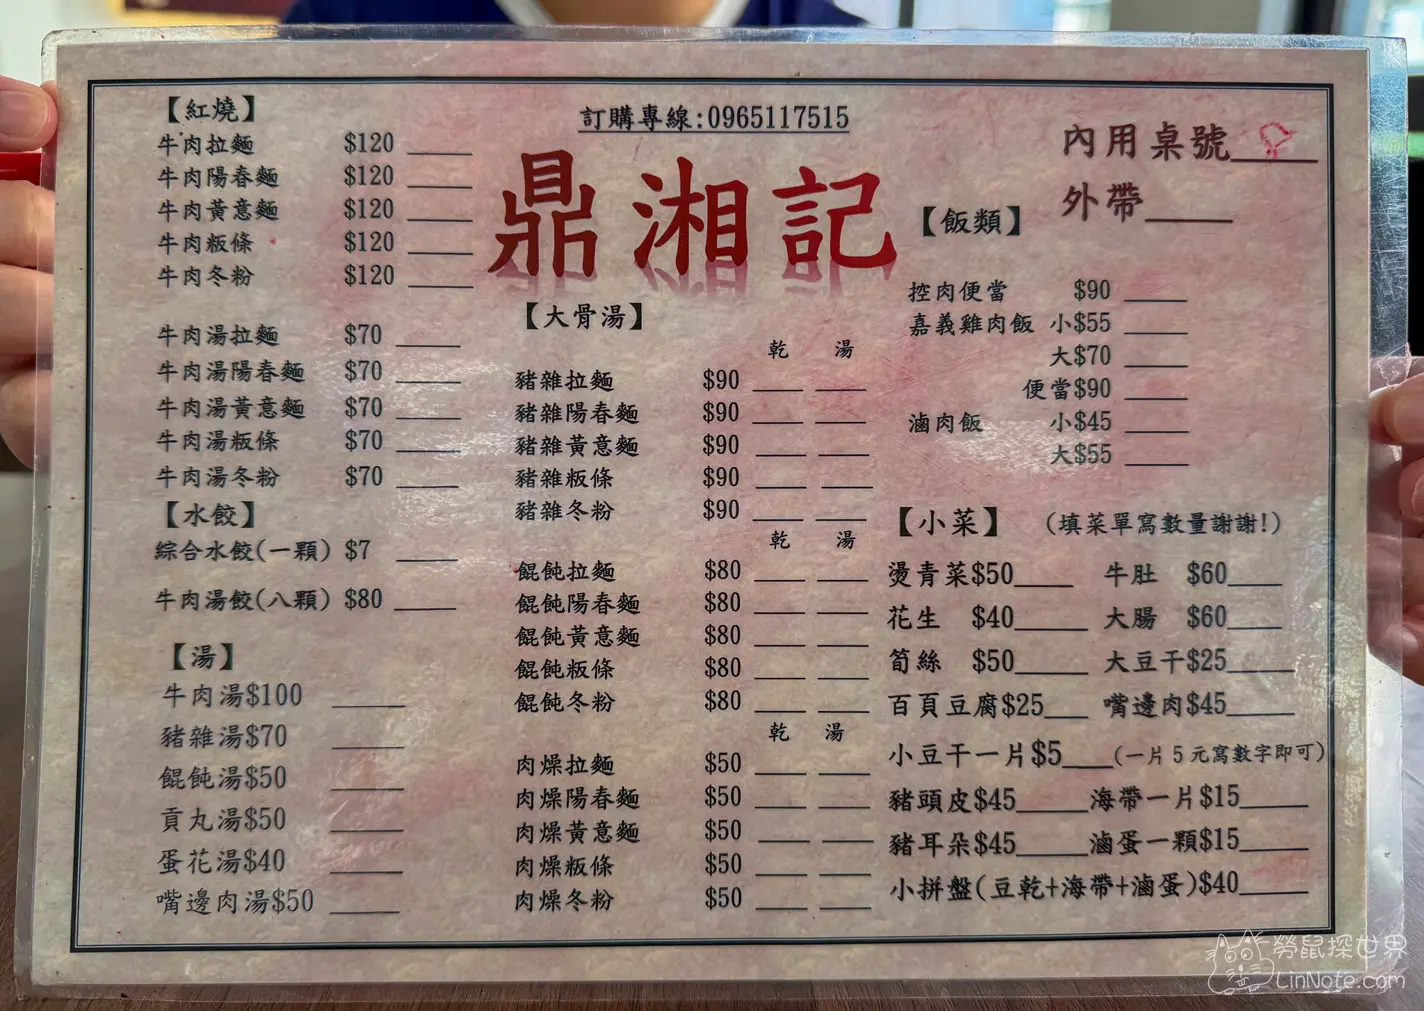 【紅燒】
牛肉拉麵 $120 ____
牛肉陽春麵 $120 ____
牛肉黃意麵 $120 ____
牛肉粄條 $120 ____
牛肉冬粉 $120 ____
牛肉湯拉麵 $70 ____
牛肉湯陽春麵 $70 ____
牛肉湯黃意麵 $70 ____
牛肉湯粄條 $70 ____
牛肉湯冬粉 $70 ____
【水餃】
綜合水餃(一顆) $7 ____
牛肉湯餃(八顆) $80 ____
【湯】
牛肉湯$100 ____
豬雜湯$70 ____
餛飩湯$50 ____
貢丸湯$50 ____
蛋花湯$40 ____
嘴邊肉湯$50 ____
訂購專線:0965117515
鼎湘記
【大骨湯】
乾 湯
豬雜拉麵 $90 ____ ____
豬雜陽春麵 $90 ____ ____
豬雜黃意麵 $90 ____ ____
豬雜粄條 $90 ____ ____
豬雜冬粉 $90 ____ ____
乾 湯
餛飩拉麵 $80 ____ ____
餛飩陽春麵 $80 ____ ____
餛飩黃意麵 $80 ____ ____
餛飩粄條 $80 ____ ____
餛飩冬粉 $80 ____ ____
乾 湯
肉燥拉麵 $50 ____ ____
肉燥陽春麵 $50 ____ ____
肉燥黃意麵 $50 ____ ____
肉燥粄條 $50 ____ ____
肉燥冬粉 $50 ____ ____
內用桌號____
外帶____
【飯類】
控肉便當 $90 ____
嘉義雞肉飯 小$55 ____
大$70 ____
便當$90 ____
滷肉飯 小$45 ____
大$55 ____
【小菜】 (填菜單寫數量謝謝!)
燙青菜$50____ 牛肚 $60____
花生 $40____ 大腸 $60____
筍絲 $50____ 大豆干$25____
百頁豆腐$25____ 嘴邊肉$45____
小豆干一片$5____(一片5元寫數字即可)
豬頭皮$45____海帶一片$15____
豬耳朵$45____滷蛋一顆$15____
小拼盤(豆乾+海帶+滷蛋)$40____
勞鼠探世界
LinNote.com